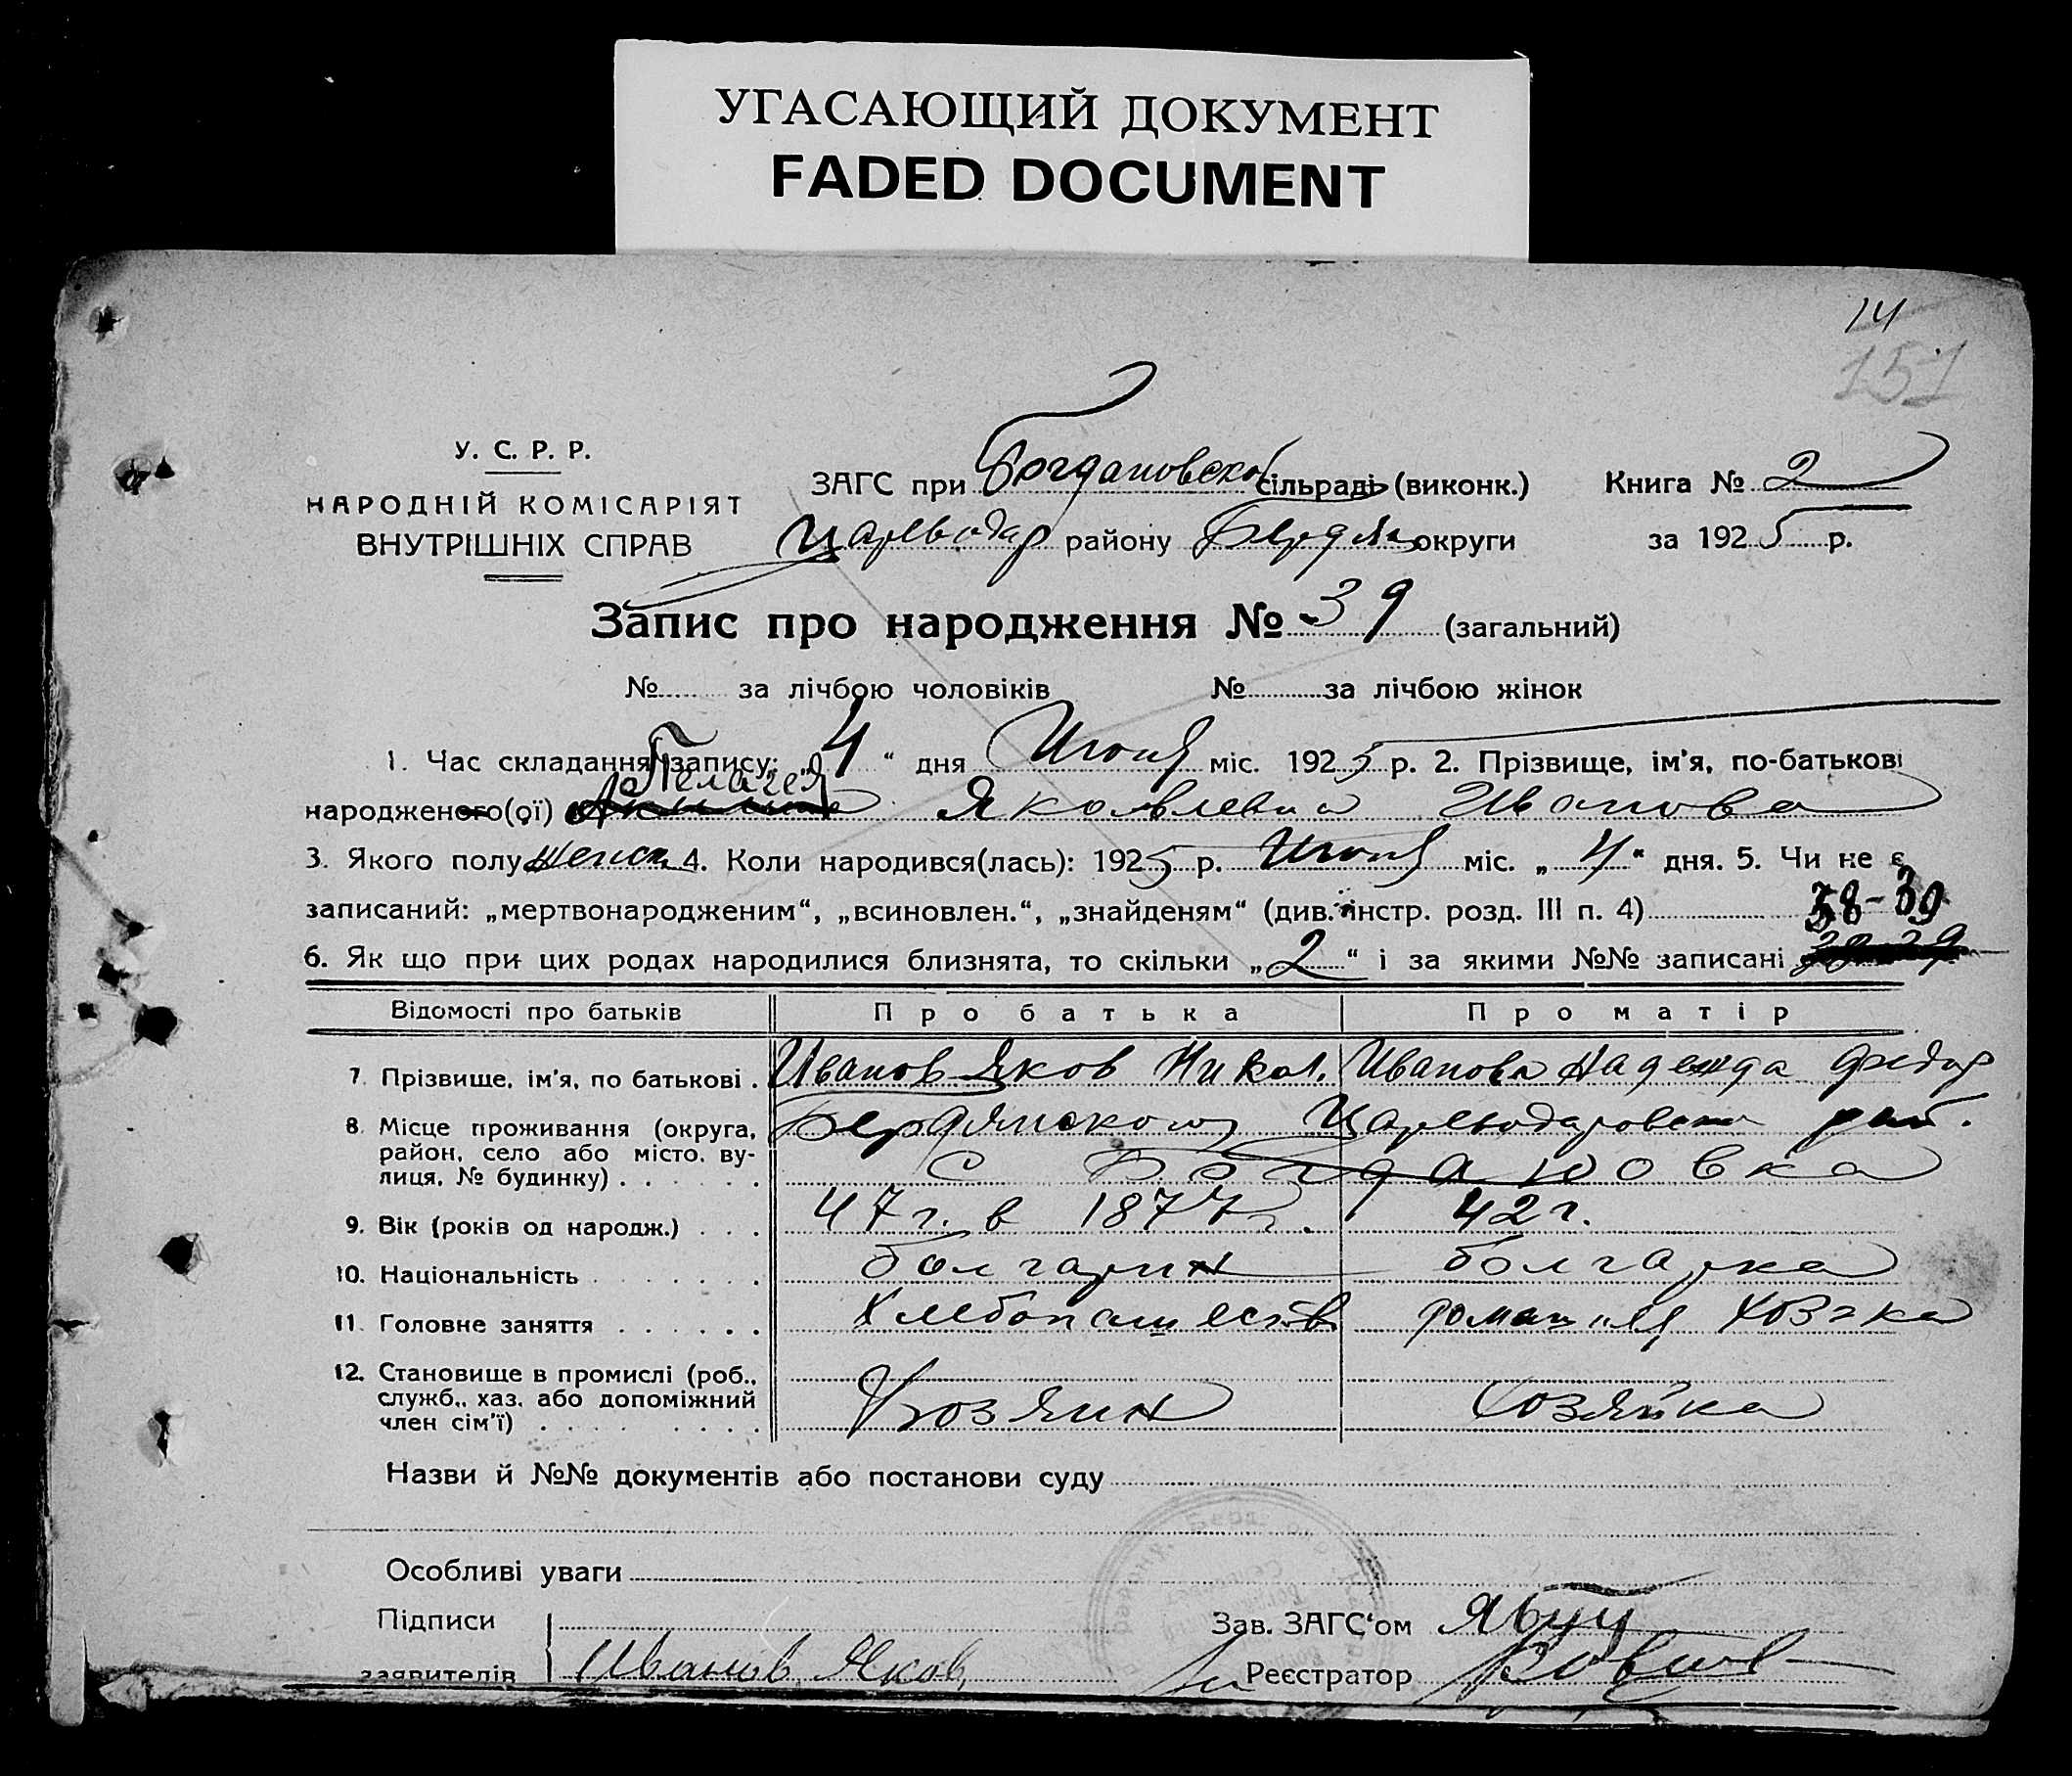 УГАСАЮЩИЙ ДОКУМЕНТ
FADED DOCUMENT
14
151
У. С. Р. Р.
НАРОДНІЙ КОМІСАРІЯТ
ВНУТРІШНІХ СПРАВ
ЗАГС при Богдановской сільраді (виконк.)
Цареводар району Бердян округи
Книга № 2
за 1925 р.
Запис про народження № 39 (загальний)
№ за лічбою чоловіків № за лічбою жінок
1. Час складання запису: „4“ дня Июня міс. 1925 р. 2. Прізвище, ім'я, по-батькові
Пелагея
народженого(ої) Яковлевна Иванова
3. Якого полу женск 4. Коли народився(лась): 1925 р. Июня міс. „4“ дня. 5. Чи не є
записаний: „мертвонародженим“, „всиновлен.“, „знайденям“ (див. інстр. розд. III п. 4) 38-39
6. Як що при цих родах народилися близнята, то скільки „2“ і за якими №№ записані
Відомості про батьків Про батька Про матір
7. Прізвище, ім'я, по батькові . Иванов Яков Никол. Иванова Надежда Федор
8. Місце проживання (округа, район, село або місто, вулиця, № будинку) . . . . . . Бердянского Цареводаровского рай.
с Богдановка
9. Вік (років од народж.) . . . 47 г. в 1877 г. 42 г.
10. Національність . . . . . . . болгарин болгарка
11. Головне заняття . . . . . . Хлебопашеств домашняя хозяка
12. Становище в промислі (роб., служб., хаз. або допоміжний член сім'ї) . . . . . . . Хозяин Хозяйка
Назви й №№ документів або постанови суду
Особливі уваги
Підписи
заявителів Иванов Яков
Зав. ЗАГС'ом
Реєстратор